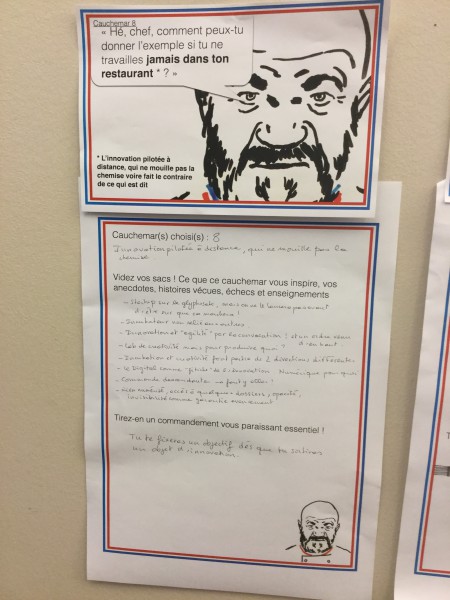 Cauchemar 8
« Hé, chef, comment peux-tu
donner l'exemple si tu ne
travailles jamais dans ton
restaurant * ? »
* L'innovation pilotée à
distance, qui ne mouille pas la
chemise voire fait le contraire
de ce qui est dit
Cauchemar(s) choisi(s) : 8
Innovation pilotée à distance, qui ne mouille pas la
chemise
Videz vos sacs ! Ce que ce cauchemar vous inspire, vos
anecdotes, histoires vécues, échecs et enseignements
- Startup sur le glyphosate,
d'être sur que ça marchera !
- Incubateur
- Innovation et "agilité" par la convocation ! et un ordre
d'en haut
- Lab de créativité mais pour produire quoi ?
- Incubation et créativité font partie de 2 directions différentes
- le Digital comme "pilote" de l'innovation Numérique pour quoi
- Commande descendante
- accès à quelques dossiers, opacité,
Tirez-en un commandement vous paraissant essentiel !
Tu te fixeras un objectif dès que tu
un objet d'innovation.